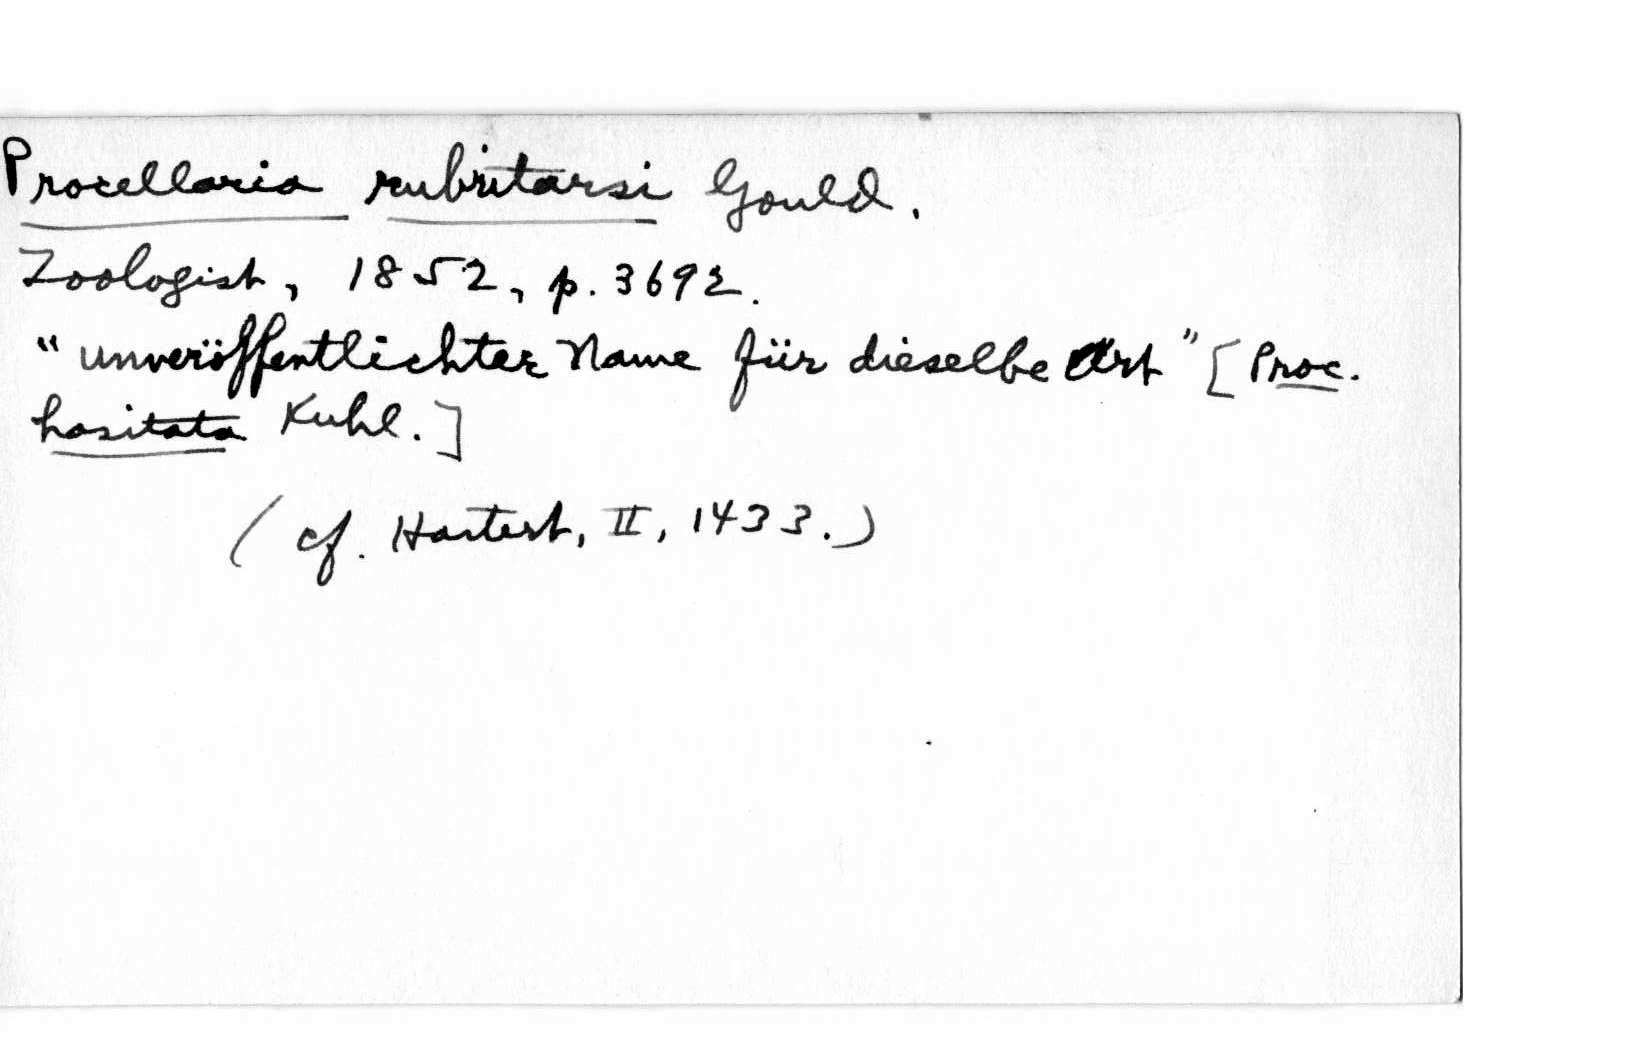 Procellaria rubritarsi Gould.
Zoologist, 1852, p. 3692.
"unveröffentlichter Name für dieselbe Art" [Proc.
hasitata Kuhl.]
(cf. Hartert, II, 1433.)